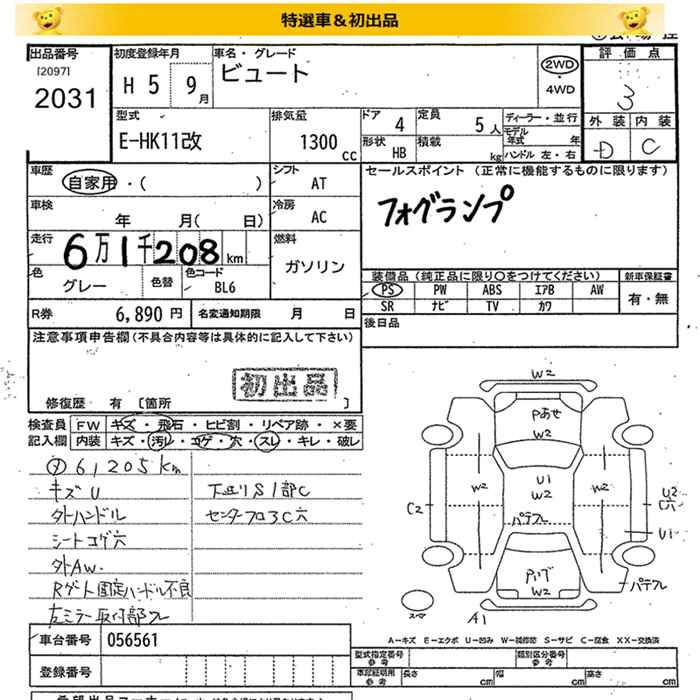 特選車＆初出品
出品番号
[2097]
2031
初度登録年月
H 5 9月
車名・グレード
ビュート
2WD
・
4WD
評価点
3
型式
E-HK11改
排気量
1300
cc
ドア
4
定員
5人
形状
HB
積載
kg
ディーラー・並行
モデル年式 年
ハンドル 左・右
外装 内装
D C
車歴
自家用・( )
シフト
AT
セールスポイント (正常に機能するものに限ります)
フォグランプ
車検
年 月( 日)
冷房
AC
走行
6万1千208km
燃料
ガソリン
色
グレー
色替
色コード
BL6
装備品(純正品に限り○をつけてください)
新車保証書
PS PW ABS エアB AW
SR ナビ TV カワ
有・無
R券
6,890円
名変通知期限 月 日
後日品
注意事項申告欄(不具合内容等は具体的に記入して下さい)
初出品
修復歴 有 [箇所 ]
検査員
記入欄
FW キズ・飛石・ヒビ割・リペア跡・×要
内装 キズ・汚レ・コゲ・穴・スレ・キレ・破レ
メ 61205km
キズU
外ハンドル
シートコゲ穴
外AW.
Rゲート固定ハンドル不良
左ミラー取付部ワレ
下廻りS1部C
センターフロアC穴
W2
Pあせ
W2
W2
U1
W2
W2
パテワレ
C2
U2
C穴
U1
Pハゲ
W2
パテワレ
スマ
A1
車台番号
056561
登録番号
A-キズ E-エクボ U-凹み W-補修跡 S-サビ C-腐食 XX-交換済
型式指定番号
参考
類別区分番号
参考
車庫証明用
参考
長さ cm
幅 cm
高さ cm